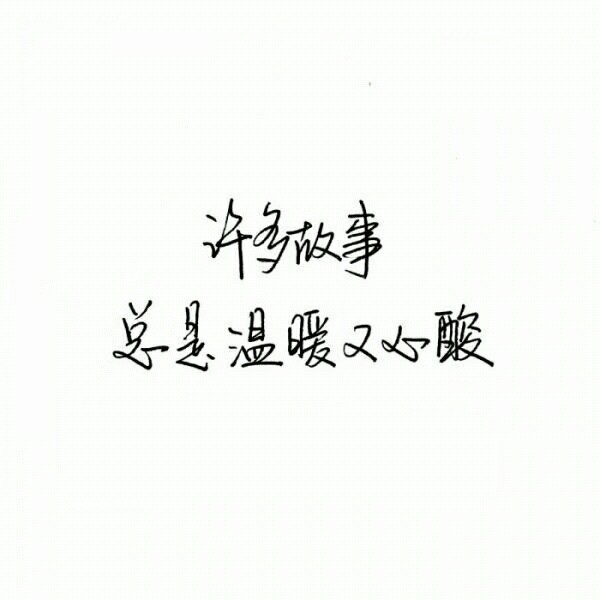 许多故事
总是温暖又心酸